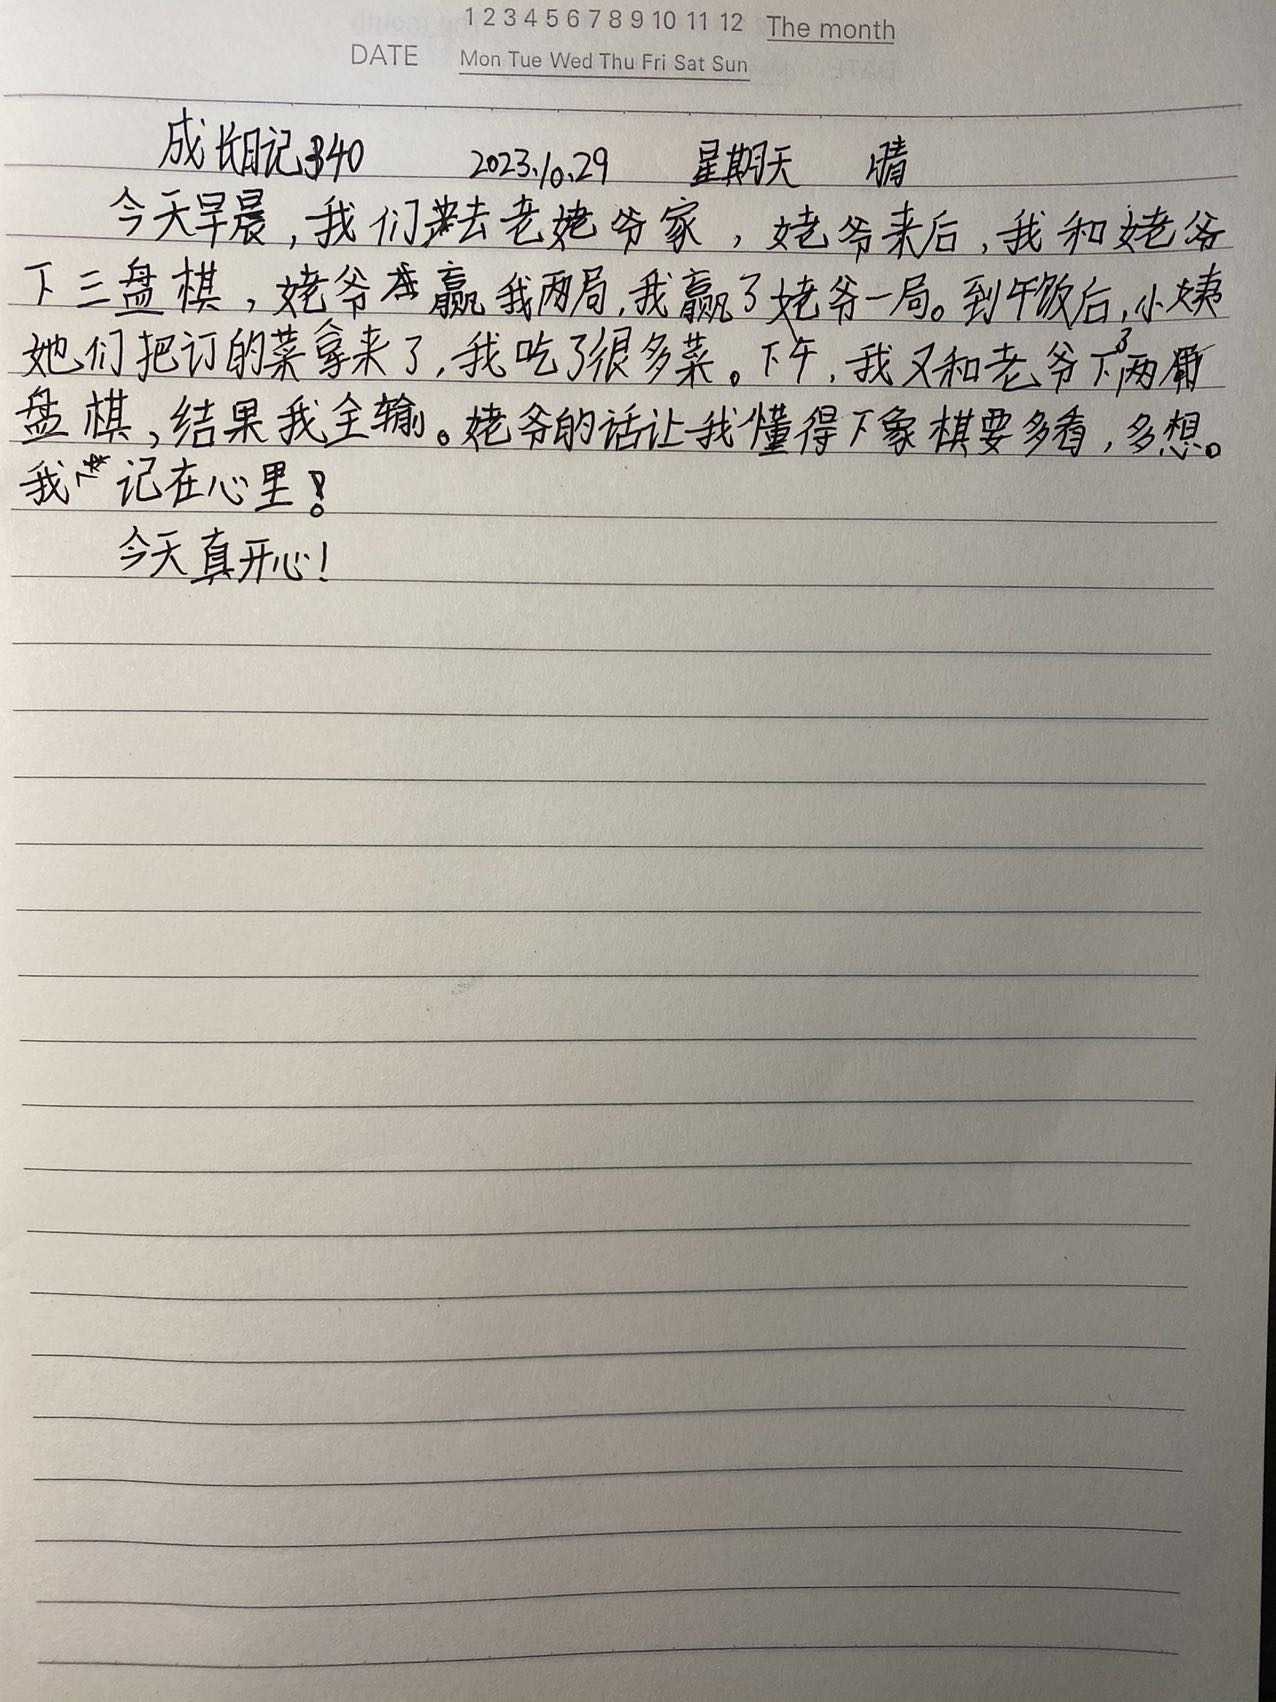 1 2 3 4 5 6 7 8 9 10 11 12 The month
DATE Mon Tue Wed Thu Fri Sat Sun
成长日记340 2023.10.29 星期天 晴
今天早晨，我们去老姥爷家，姥爷来后，我和姥爷
下三盘棋，姥爷赢我两局，我赢了姥爷一局。到午饭后，小姨
她们把订的菜拿来了，我吃了很多菜。下午，我又和老爷下了两
盘棋，结果我全输。姥爷的话让我懂得下象棋要多看，多想。
我 记在心里！
今天真开心！